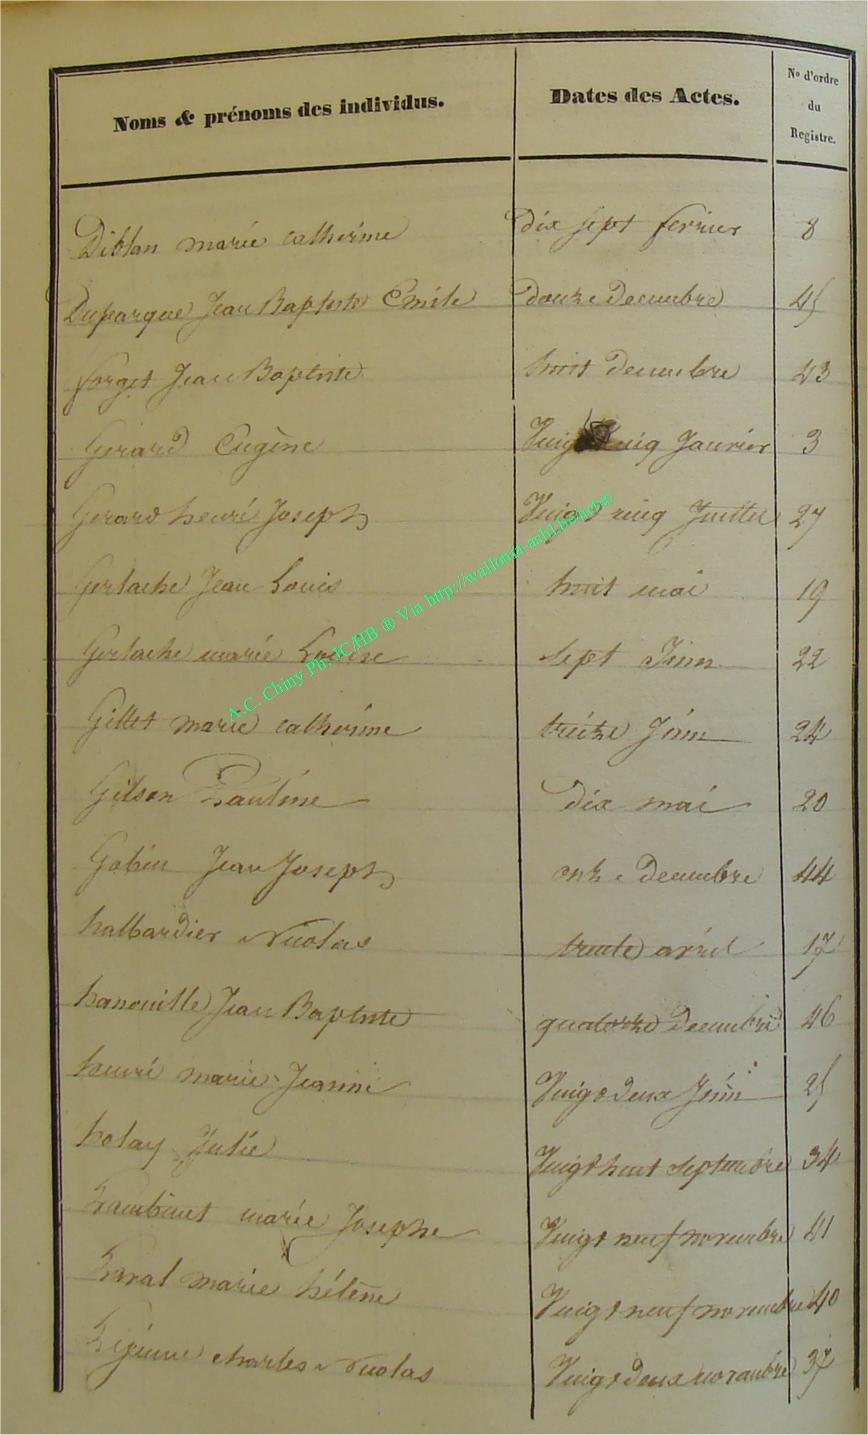 Noms & prénoms des individus. Dates des Actes. N° d'ordre
du
Registre.
Diblon marie catherine dix sept fevrier 8
Duparque Jean Baptiste Emile douze decembre 45
forget Jean Baptiste huit decembre 43
Gerard Eugène Vingt cinq Janvier 3
Gerard henri Joseph Vingt cinq Juillet 27
Gerlache Jean Louis huit mai 19
Gerlache marie Louise sept Juin 22
Gillet marie catherine treize Juin 24
Gilson Pauline dix mai 20
Gobin Jean Joseph onze decembre 44
halbardier Nicolas trente avril 17
hanouille Jean Baptiste quatorze decembre 46
henri marie Jeanne Vingt deux Juin 25
holay Julie Vingt huit septembre 34
Lambinet marie Josephe Vingt neuf novembre 41
Laval marie hélène Vingt neuf novembre 40
Lejeune charles Nicolas Vingt deux novembre 37
A.C. Chiny Ph. JCHB ® Via http://wallonia-asbl.be/actes